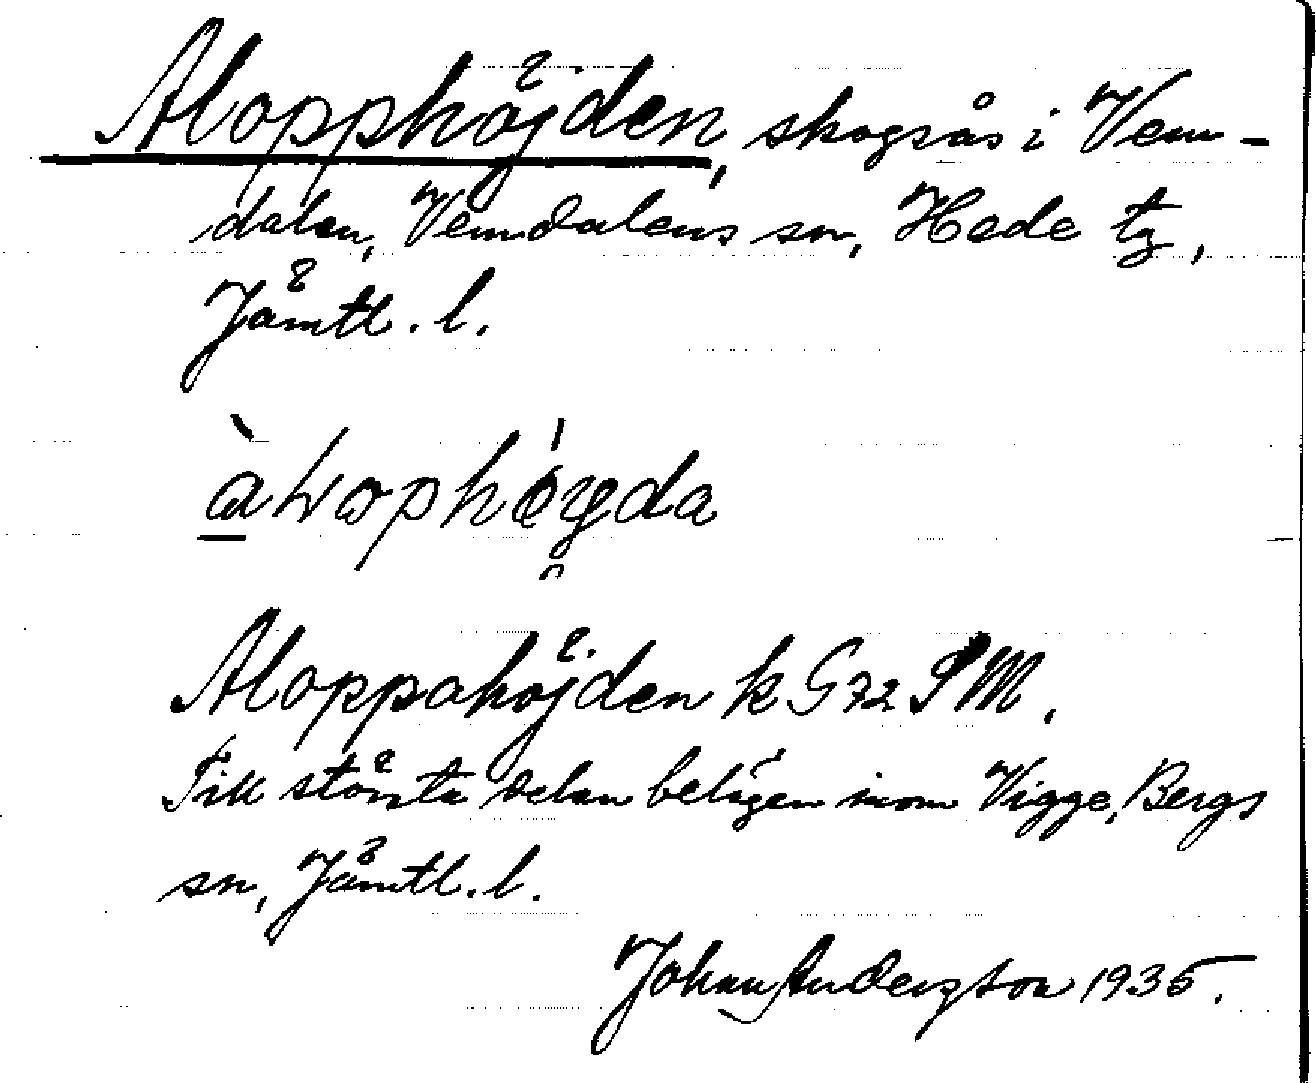 Alopphöjden, skogsås i Vem-
dalen, Vemdalens sn, Hede tg,
Jämtl. l.
Aloppahöjden k G72 SM.
Till största delen belägen inom Vigge, Bergs
sn, Jämtl. l.
Johan Andersson 1935.